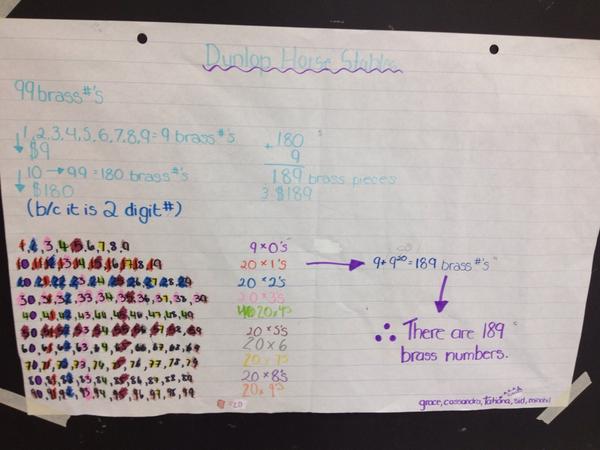 Dunlop Horse Stables
99 brass #'s
1,2,3,4,5,6,7,8,9 = 9 brass #'s
$9
10 → 99 = 180 brass #'s
$180
(b/c it is 2 digit #)
180
+ 9
189 brass pieces
$189
1,2,3,4,5,6,7,8,9
10,11,12,13,14,15,16,17,18,19
20,21,22,23,24,25,26,27,28,29
30,31,32,33,34,35,36,37,38,39
40,41,42,43,44,45,46,47,48,49
50,51,52,53,54,55,56,57,58,59
60,61,62,63,64,65,66,67,68,69
70,71,72,73,74,75,76,77,78,79
80,81,82,83,84,85,86,87,88,89
90,91,92,93,94,95,96,97,98,99
9×0's
20×1's
20×2's
20×3's
20×4's
20×5's
20×6
20×7's
20×8's
20×9's
=20
9+9²⁰=189 brass #'s
∴ There are 189
brass numbers.
grace, cassandra, Tatiana, sid, minahil